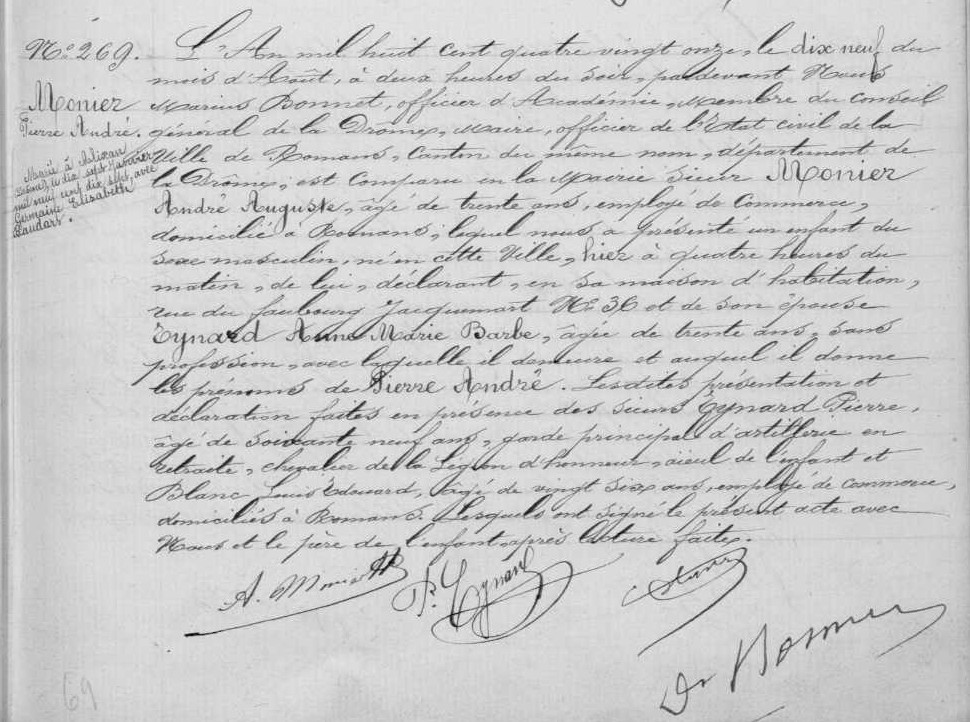 N° 269.
Monier
Pierre André.
Marié à Alixan
le dix sept Janvier
mil neuf cent dix sept, avec
Germaine Elisabeth
L'An mil huit cent quatre vingt onze, le dix neuf du
mois d'Août, à deux heures du soir, pardevant Nous
Marius Bonnet, officier d'Académie, Membre du conseil
général de la Drôme, Maire, officier de l'Etat civil de la
Ville de Romans, Canton du même nom, département de
la Drôme, est comparu en la Mairie sieur Monier
André Auguste, âgé de trente ans, employé de Commerce,
domicilié à Romans, lequel nous a présenté un enfant du
sexe masculin, né en cette Ville, hier à quatre heures du
matin, de lui, déclarant, en sa maison d'habitation,
rue du faubourg Jacquemart N° 36 et de son épouse
Eynard Anne Marie Barbe, âgée de trente ans, sans
profession, avec laquelle il demeure et auquel il donne
les prénoms de Pierre André. Lesdites présentation et
déclaration faites en présence des sieurs Eynard Pierre,
âgé de soixante neuf ans, garde principal d'artillerie en
retraite, chevalier de la Légion d'honneur, aïeul de l'enfant et
Blanc Louis Edouard, âgé de vingt six ans, employé de commerce,
domiciliés à Romans. Lesquels ont signé le présent acte avec
Nous et le père de l'enfant après lecture faite.
A. Monier
P. Eynard
Dr Bonnet
69